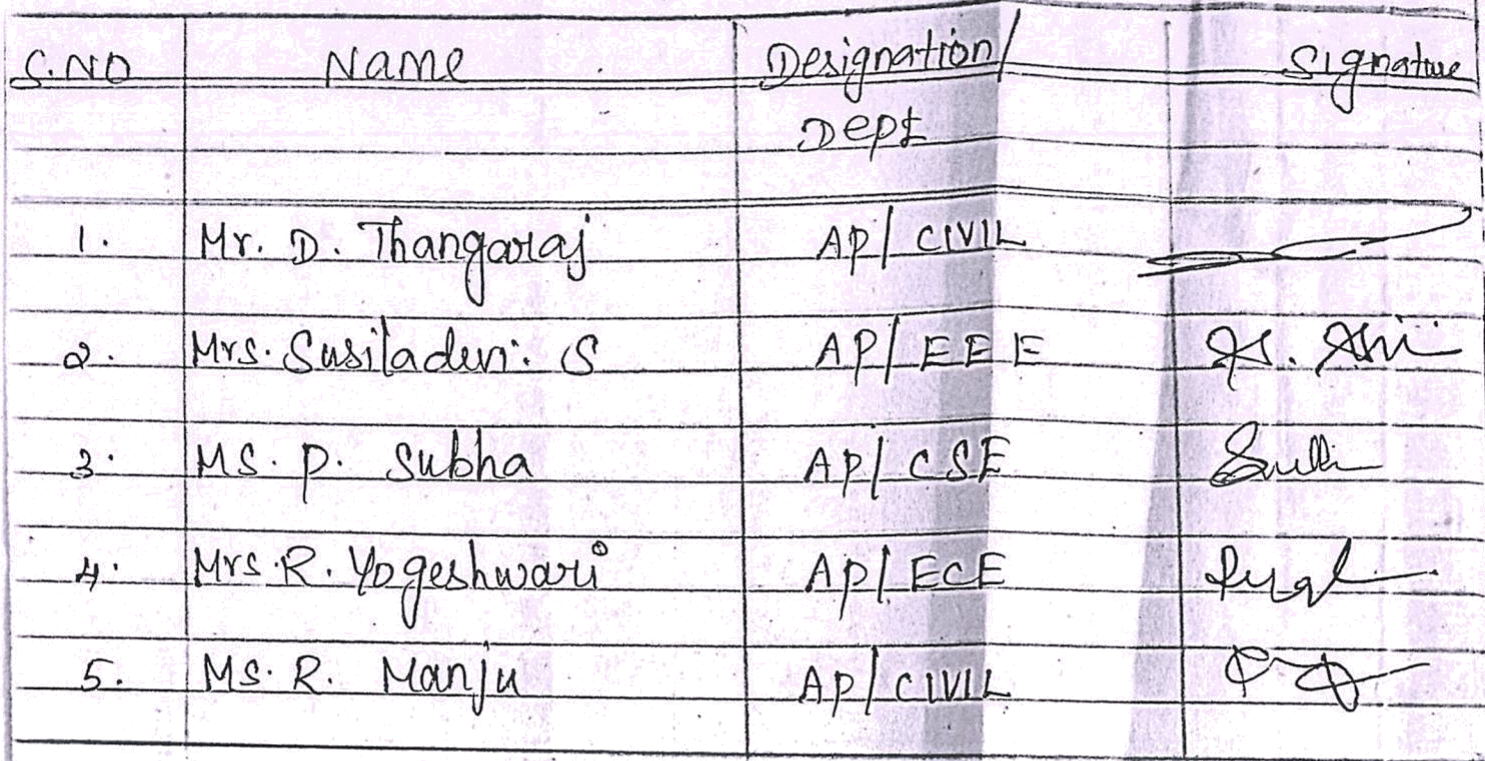 S.NO Name Designation/ Signature
Dept
1. Mr. D. Thangaraj AP/CIVIL
2. Mrs. Susiladevi. S AP/EEE
3. MS. P. Subha AP/CSE
4. Mrs. R. Yogeshwari AP/ECE
5. Ms. R. Manju AP/CIVIL